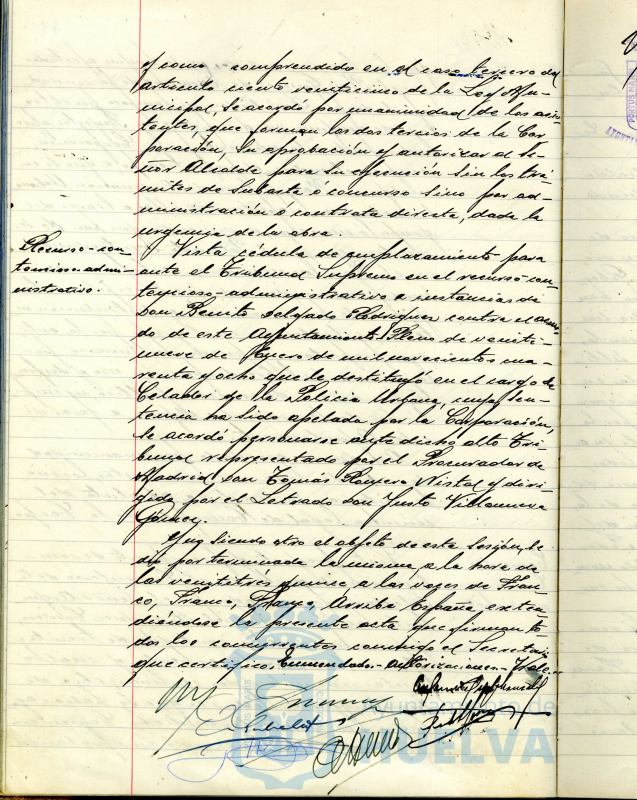 y como comprendido en el caso tercero del
artículo ciento veinticinco de la Ley Mu-
nicipal, se acordó por unanimidad de los asis-
tentes, que forman los dos tercios de la Cor-
poración, su aprobación y autorizar al Se-
ñor Alcalde para su ejecución sin los trá-
mites de subasta ó concurso sino por ad-
ministración ó contrata directa, dada la
urgencia de la obra.
Recurso-con-
tencioso-admi-
nistrativo.
Vista cédula de emplazamiento para
ante el Tribunal Supremo en el recurso con-
tencioso-administrativo a instancias de
Don Benito Delgado Rodríguez contra el acuer-
do de este Ayuntamiento Pleno de veinti-
nueve de Enero de mil novecientos cua-
renta y ocho que le destituyó en el cargo de
Celador de la Policía Urbana, cuya sen-
tencia ha sido apelada por la Corporación,
se acordó personarse ante dicho alto Tri-
bunal representado por el Procurador de
Madrid Don Tomás Romero Nistal y diri-
gido por el Letrado Don Justo Villanueva
Gómez.
Y no siendo otro el objeto de esta sesión, se
dió por terminada la misma, a la hora de
las veintitrés quince a las voces de Fran-
co, Franco, Franco, Arriba España, exten-
diéndose la presente acta que firman to-
dos los comparentes conmigo el Secretario
que certifico. Enmendado.- autorizaciones - Vale.-
Ayuntamiento de
HUELVA